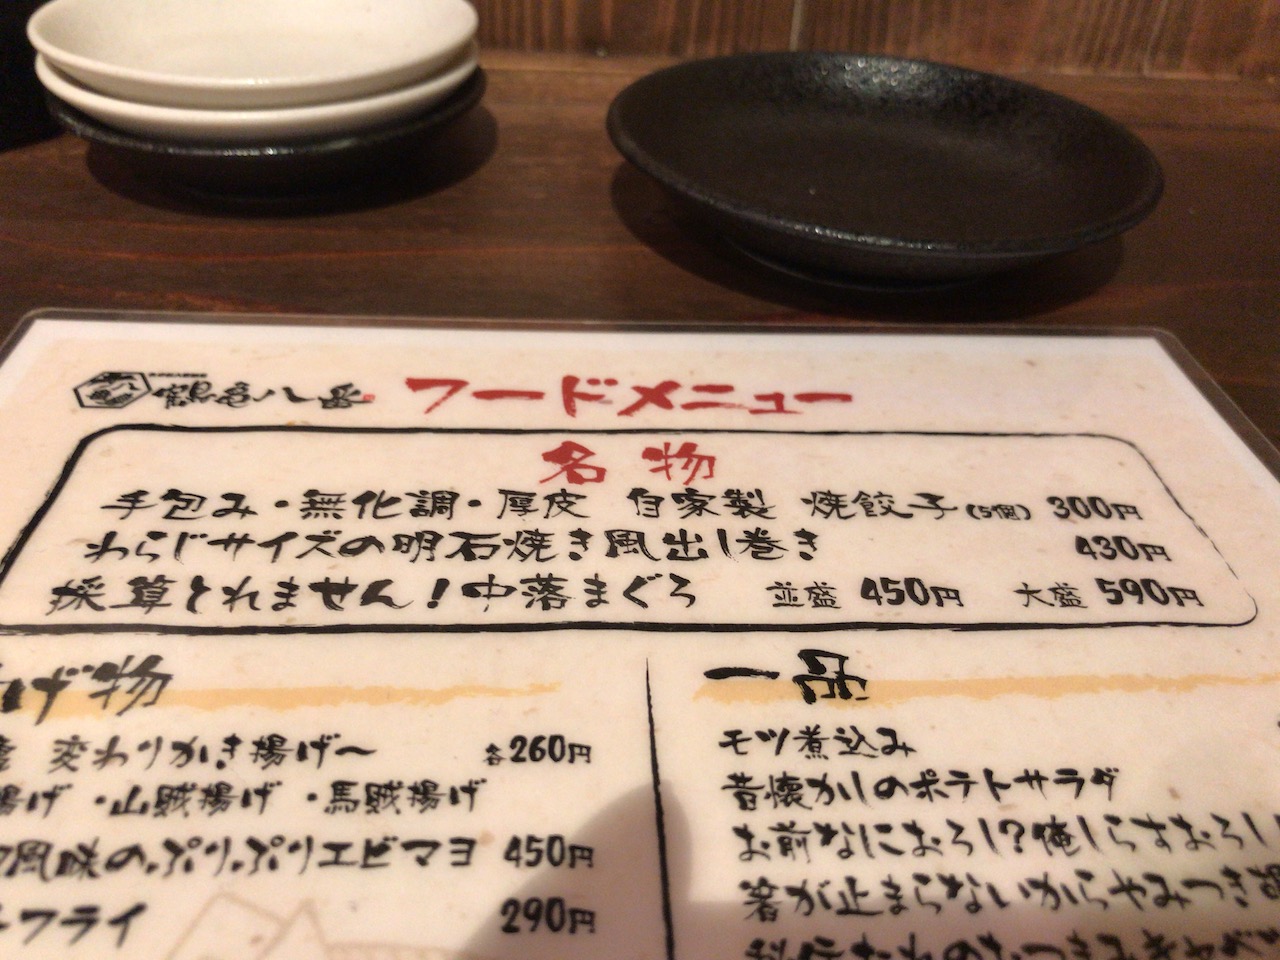 鶴亀八番
フードメニュー
名物
手包み・無化調・厚皮 自家製 焼餃子(5個) 300円
わらじサイズの明石焼き風出し巻き 430円
採算とれません!中落まぐろ 並盛 450円 大盛 590円
げ物
変わりかき揚げ〜 各260円
揚げ ・山賊揚げ ・馬賊揚げ
風味のぷりぷりエビマヨ 450円
フライ 290円
一品
モツ煮込み
昔懐かしのポテトサラダ
お前なにおろし?俺しらすおろし
箸が止まらないからやみつき